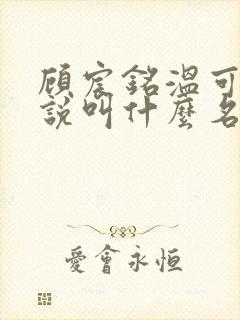 顧宸銘溫可
說叫什麼名
愛會永恒